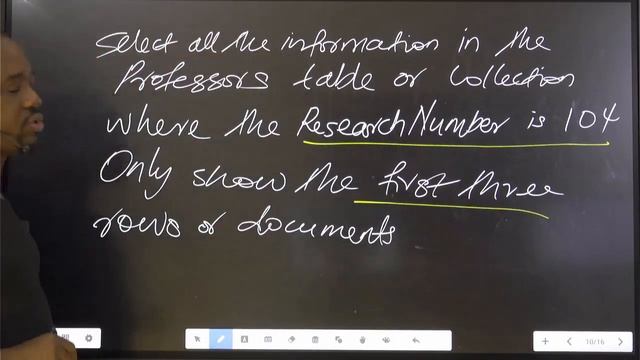 Select all the information in the
Professors table or Collection
where the ResearchNumber is 104
Only show the first three
rows or documents
10/16